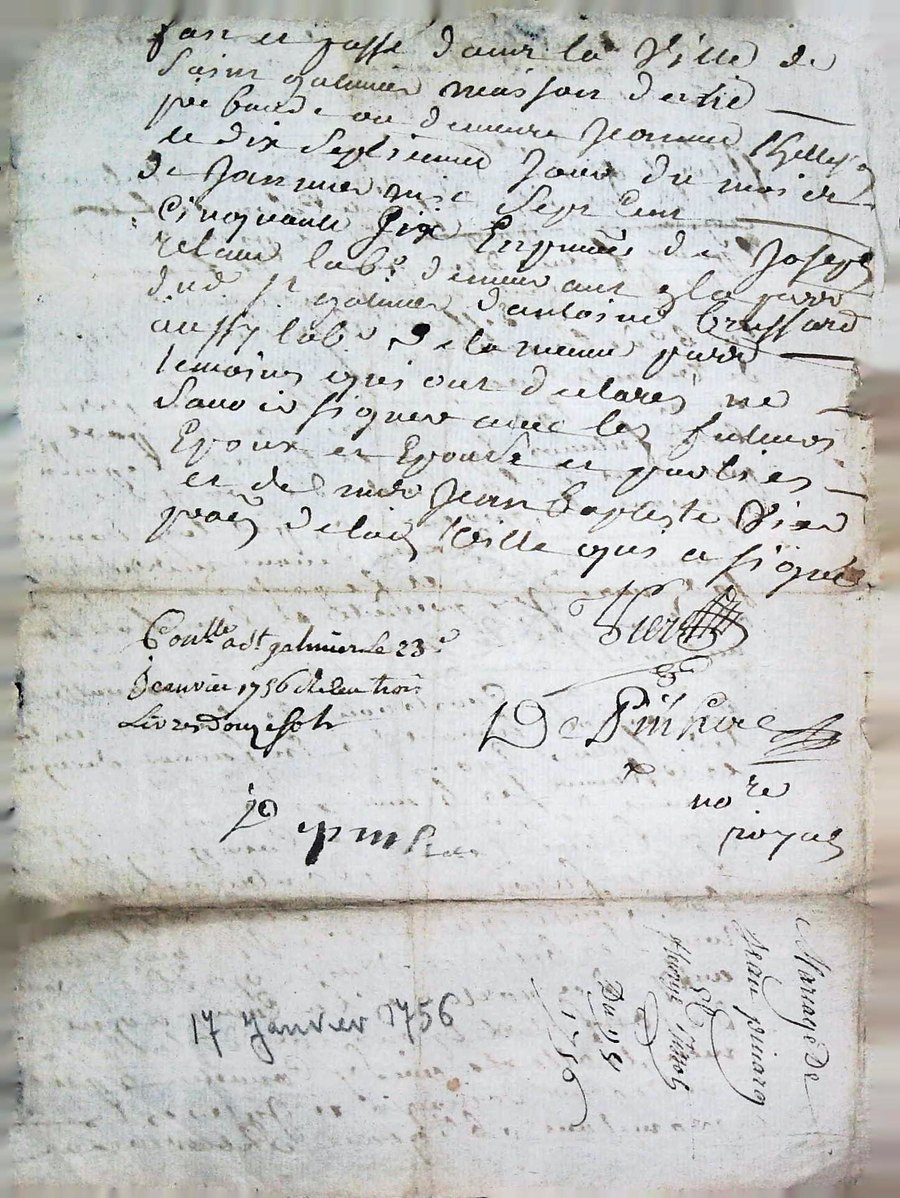 fait et passé dans la Ville de
Saint galmier maison dertié
par bande ou demeure Jeanne
le dix septieme Jour du mois
de Janvier mil Sept Cent
Cinquante Six En pnce de Joseph
labr demeurant ala parr
dud st galmier d'antoine brossard
aussy labr de la meme parr
temoins qui ont declarés ne
Savoir signer avec les futurs
Epoux et Epouse et parties
et de mre Jean baptiste Vier
de lad Ville qui a signé
Vier
Conlle a st galmier le 23e
Janvier 1756 Receu trois
Livres douze sols
De
nore
royal
17 Janvier 1756
Mariage De
Jean pinard
&
Du
1756